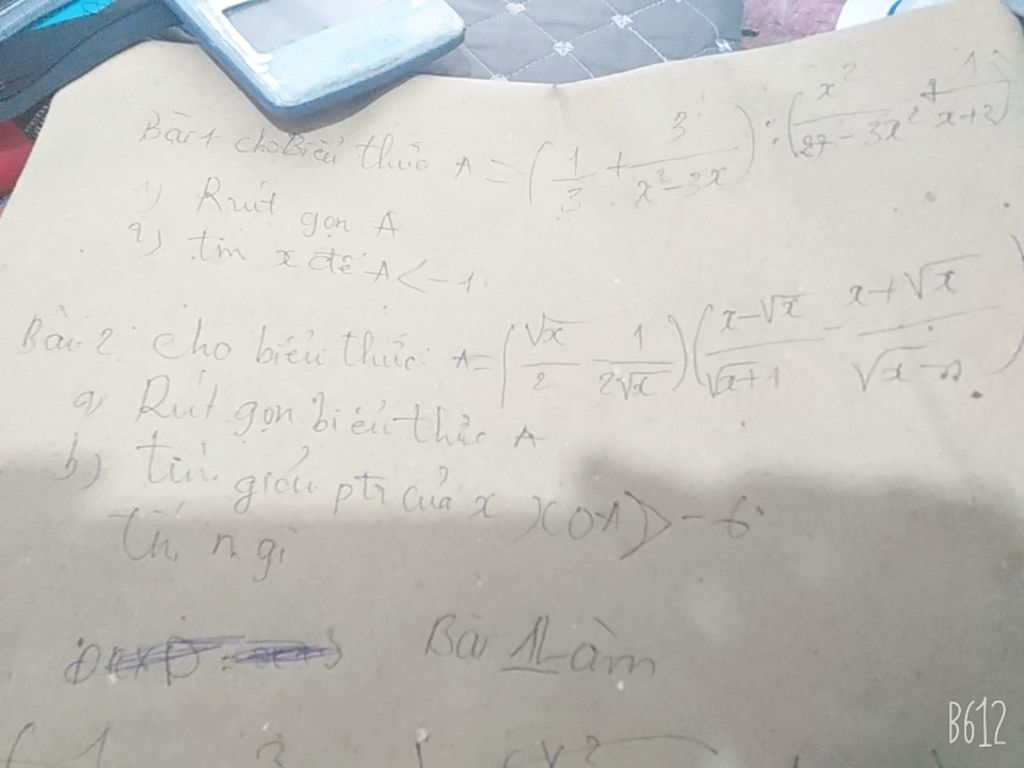 Bài 1 cho Biểu thức A = (1/3 + 3/(x² - 3x)) : (x²/(27 - 3x²) + 1/(x+3))
1) Rút gọn A
2) tìm x để A < -1
Bài 2: cho biểu thức: A = (√x/2 - 1/(2√x)) ((x-√x)/(√x+1) - (x+√x)/(√x-1))
a) Rút gọn biểu thức A
b) tìm giá trị của x A > -6
Bài Làm
B612